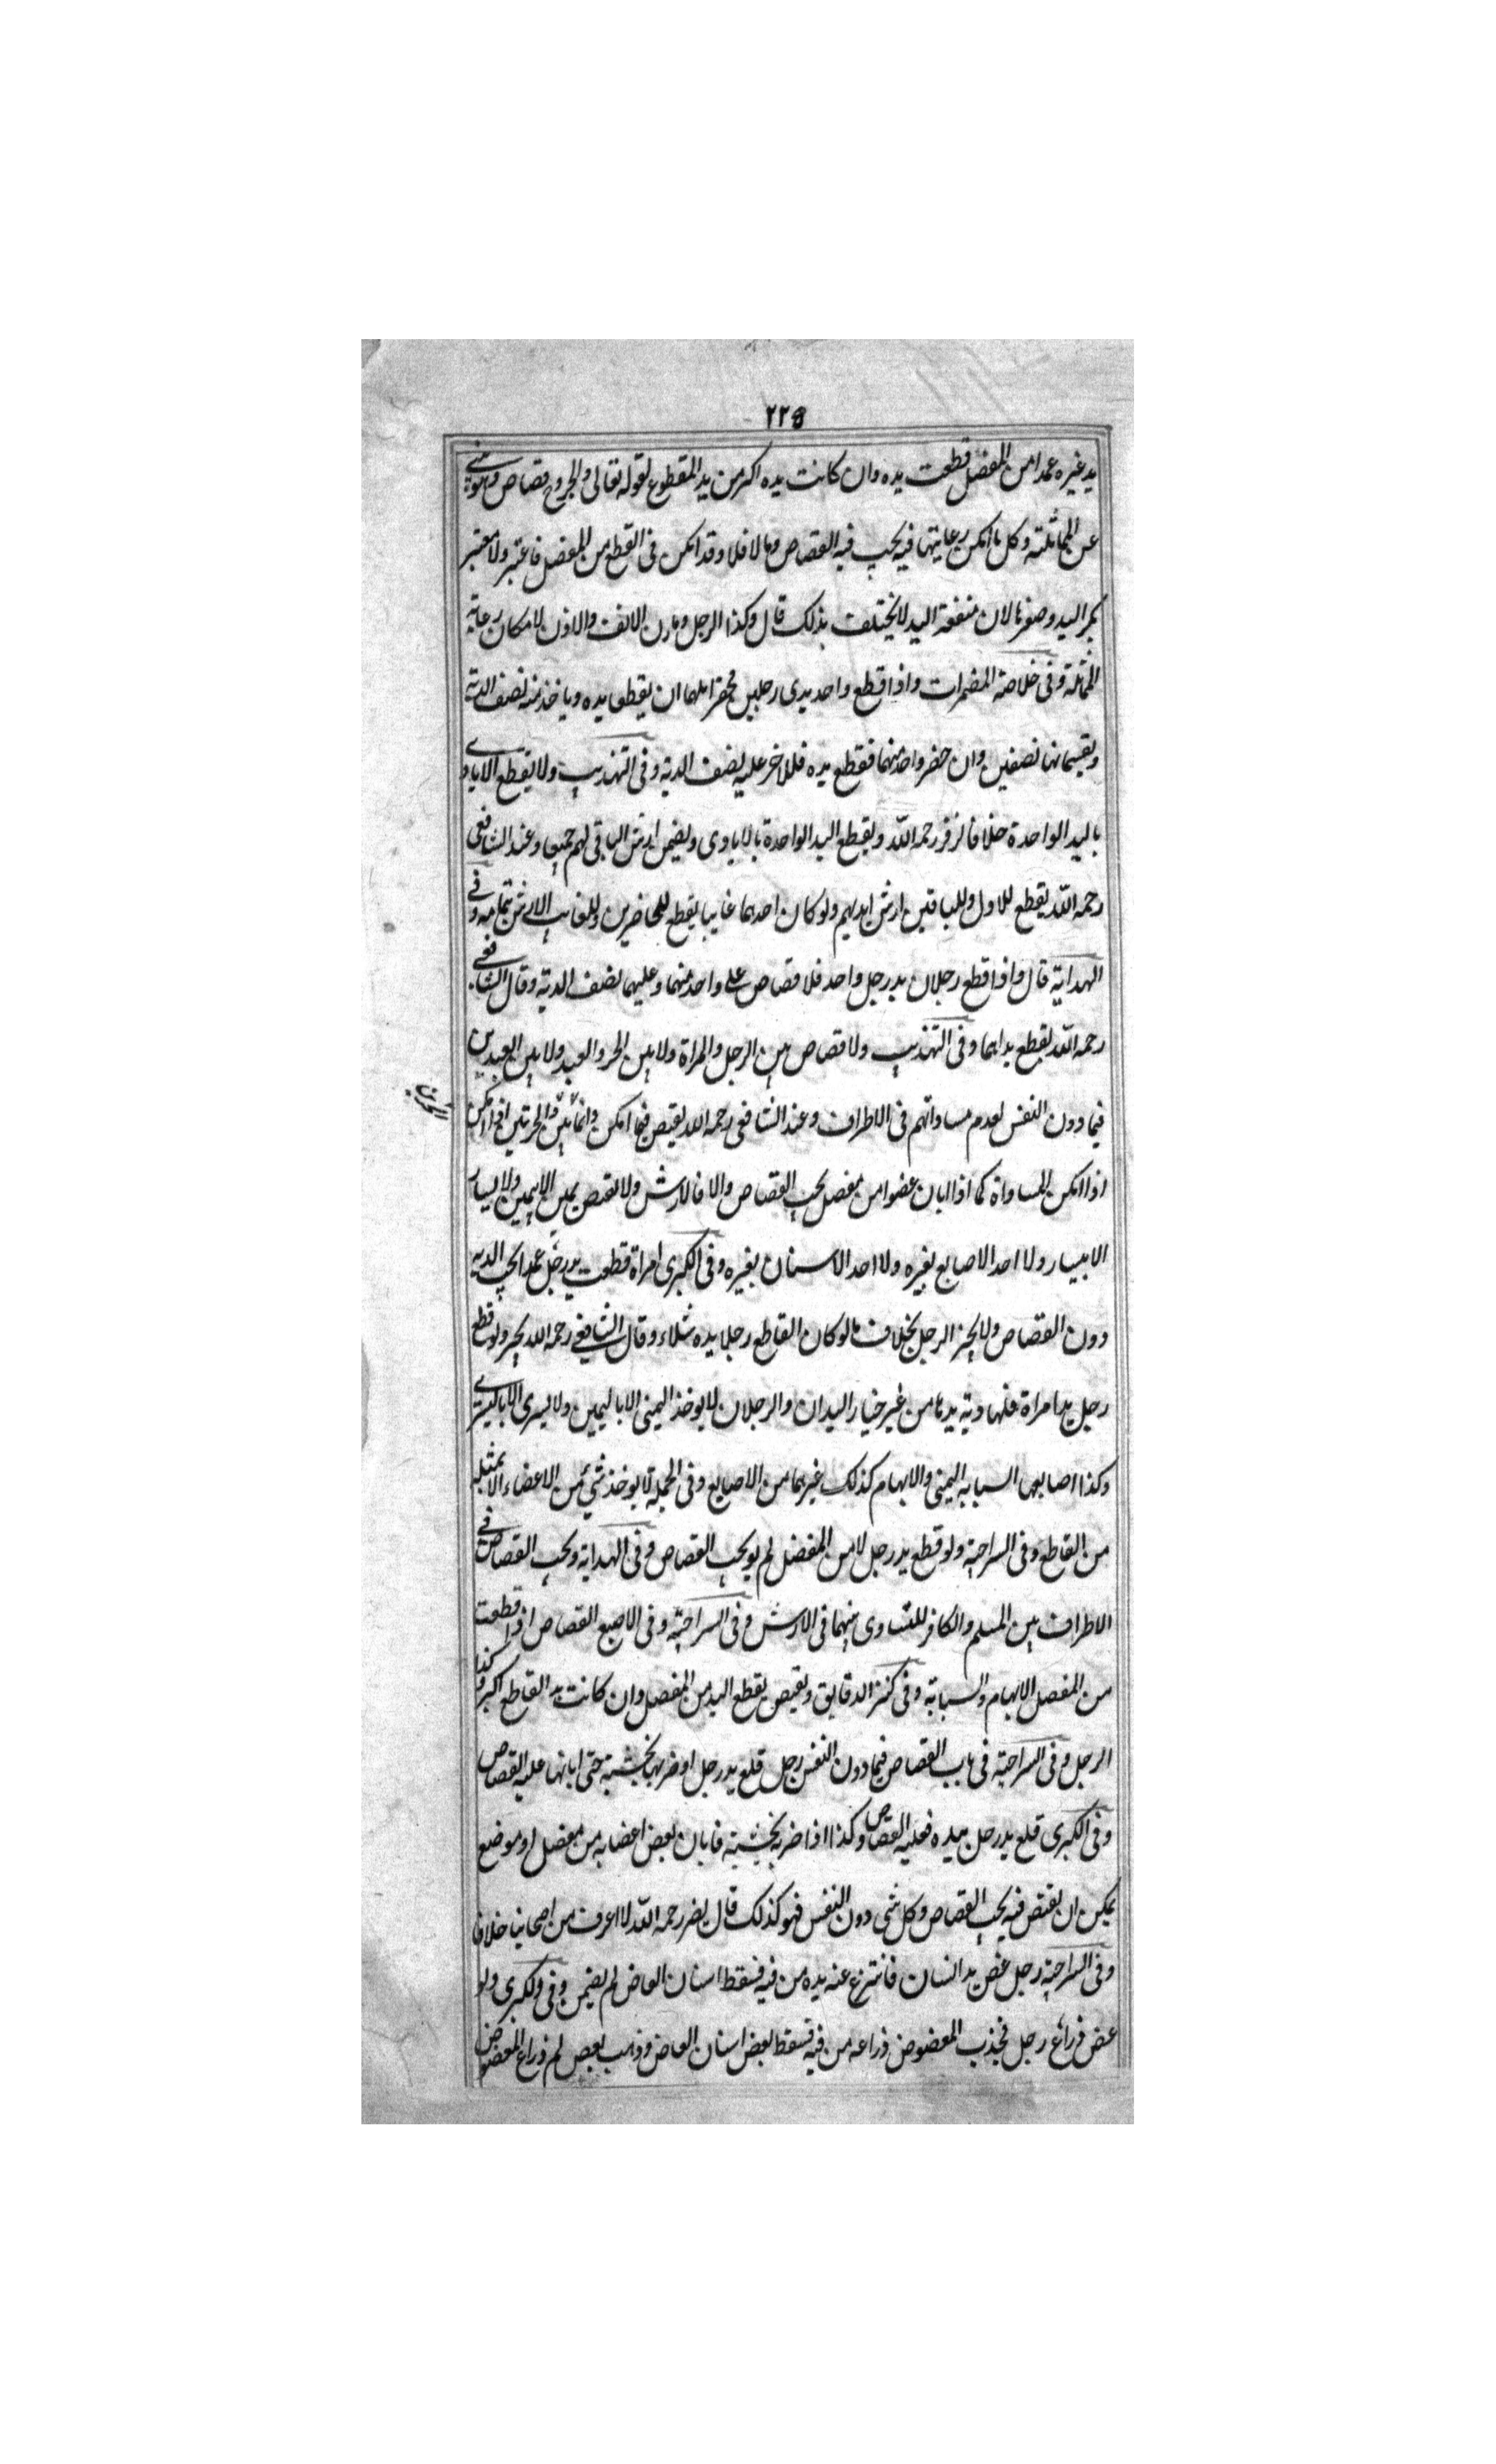 ٢٢٥
يد غيره عمدا من المفصل قطعت يده وان كانت يده اكبر من يد المقطوع لقوله تعالى والجروح قصاص وهو ينبي
عن المماثلة وكل ما امكن رعايتها فيه يجب فيه القصاص وما لا فلا وقد امكن في القطع من المفصل فاعتبر ولا معتبر
بكبر اليد وصغرها لان منفعة اليد لا يختلف بذلك قال وكذا الرجل ومارن الانف والاذن لامكان رعاية
المماثلة وفي خلاصة المضمرات واذا قطع واحد يدي رجلين فحضرا لهما ان يقطع يده وياخذ منه نصف الدية
ويقسمانها نصفين وان حضر واحد منهما فقطع يده فللاخر عليه نصف الدية وفي التهذيب ولا يقطع الايادي
باليد الواحدة خلافا لزفر رحمه الله ويقطع اليد الواحدة بالايادي ويضمن ارش الباقي لهم جميعا وعند الشافعي
رحمه الله يقطع للاول وللباقين ارش ايديهم ولو كان احدهما غايبا يقطع للحاضرين وللغايب الارش بتمامه وفي
الهداية قال واذا قطع رجلان يد رجل واحد فلا قصاص على واحد منهما وعليهما نصف الدية وقال الشافعي
رحمه الله يقطع يداهما وفي التهذيب ولا قصاص بين الرجل والمراة ولا بين الحر والعبد ولا بين العبدين
فيما دون النفس لعدم مساواتهم في الاطراف وعند الشافعي رحمه الله يقتص فيما امكن وانما بين الحرتين اذا امكن
اذا امكن المساواة كما اذا ابان عضوا من مفصل يجب القصاص والا فالارش ولا يقتص يمين الا بيمين ولا يسار
الا بيسار ولا احد الاصابع بغيره ولا احد الاسنان بغيره وفي الكبرى امراة قطعت يد رجل عمدا يجب الدية
دون القصاص ولا يخير الرجل بخلاف ما لو كان القاطع رجلا يده شلاء وقال الشافعي رحمه الله يخير ولو قطع
رجل يد امراة فلها دية يدها من غير خيار اليدان والرجلان لا يوخذ اليمنى الا باليمين ولا يسرى الا باليسرى
وكذا اصابعها السبابه اليمنى والابهام كذلك غيرهما من الاصابع وفي الجملة لا يوخذ شيء من الاعضاء الا بمثله
من القاطع وفي السراجية ولو قطع يد رجل لا من المفصل لم يوجب القصاص وفي الهداية ويجب القصاص في
الاطراف بين المسلم والكافر للتساوي بينهما في الارش وفي السراجية وفي الاصبع القصاص اذا قطعت
من المفصل الابهام والسبابة وفي كنز الدقايق ويقتص بقطع اليد من المفصل وان كانت يد القاطع اكبر وكذا
الرجل وفي السراجية في باب القصاص فيما دون النفس رجل قلع يد رجل او ضربها بخشبة حتى ابانها عليه القصاص
وفي الكبرى قلع يد رجل بيده فعليه القصاص وكذا اذا ضربه بخشبة فابان بعض اعضايه من مفصل او موضع
يمكن ان يقتص فيه يجب القصاص وكل شي دون النفس فهو كذلك قال نصر رحمه الله لا اعرف من اصحابنا خلافا
وفي السراجية رجل عض يد انسان فانتزع عنه يده من فيه فسقط اسنان العاض لم يضمن وفي الكبرى ولو
عض ذراع رجل فجذب المعضوض ذراعه من فيه فسقط بعض اسنان العاض وذهب بعض لم ذراع المعضوض